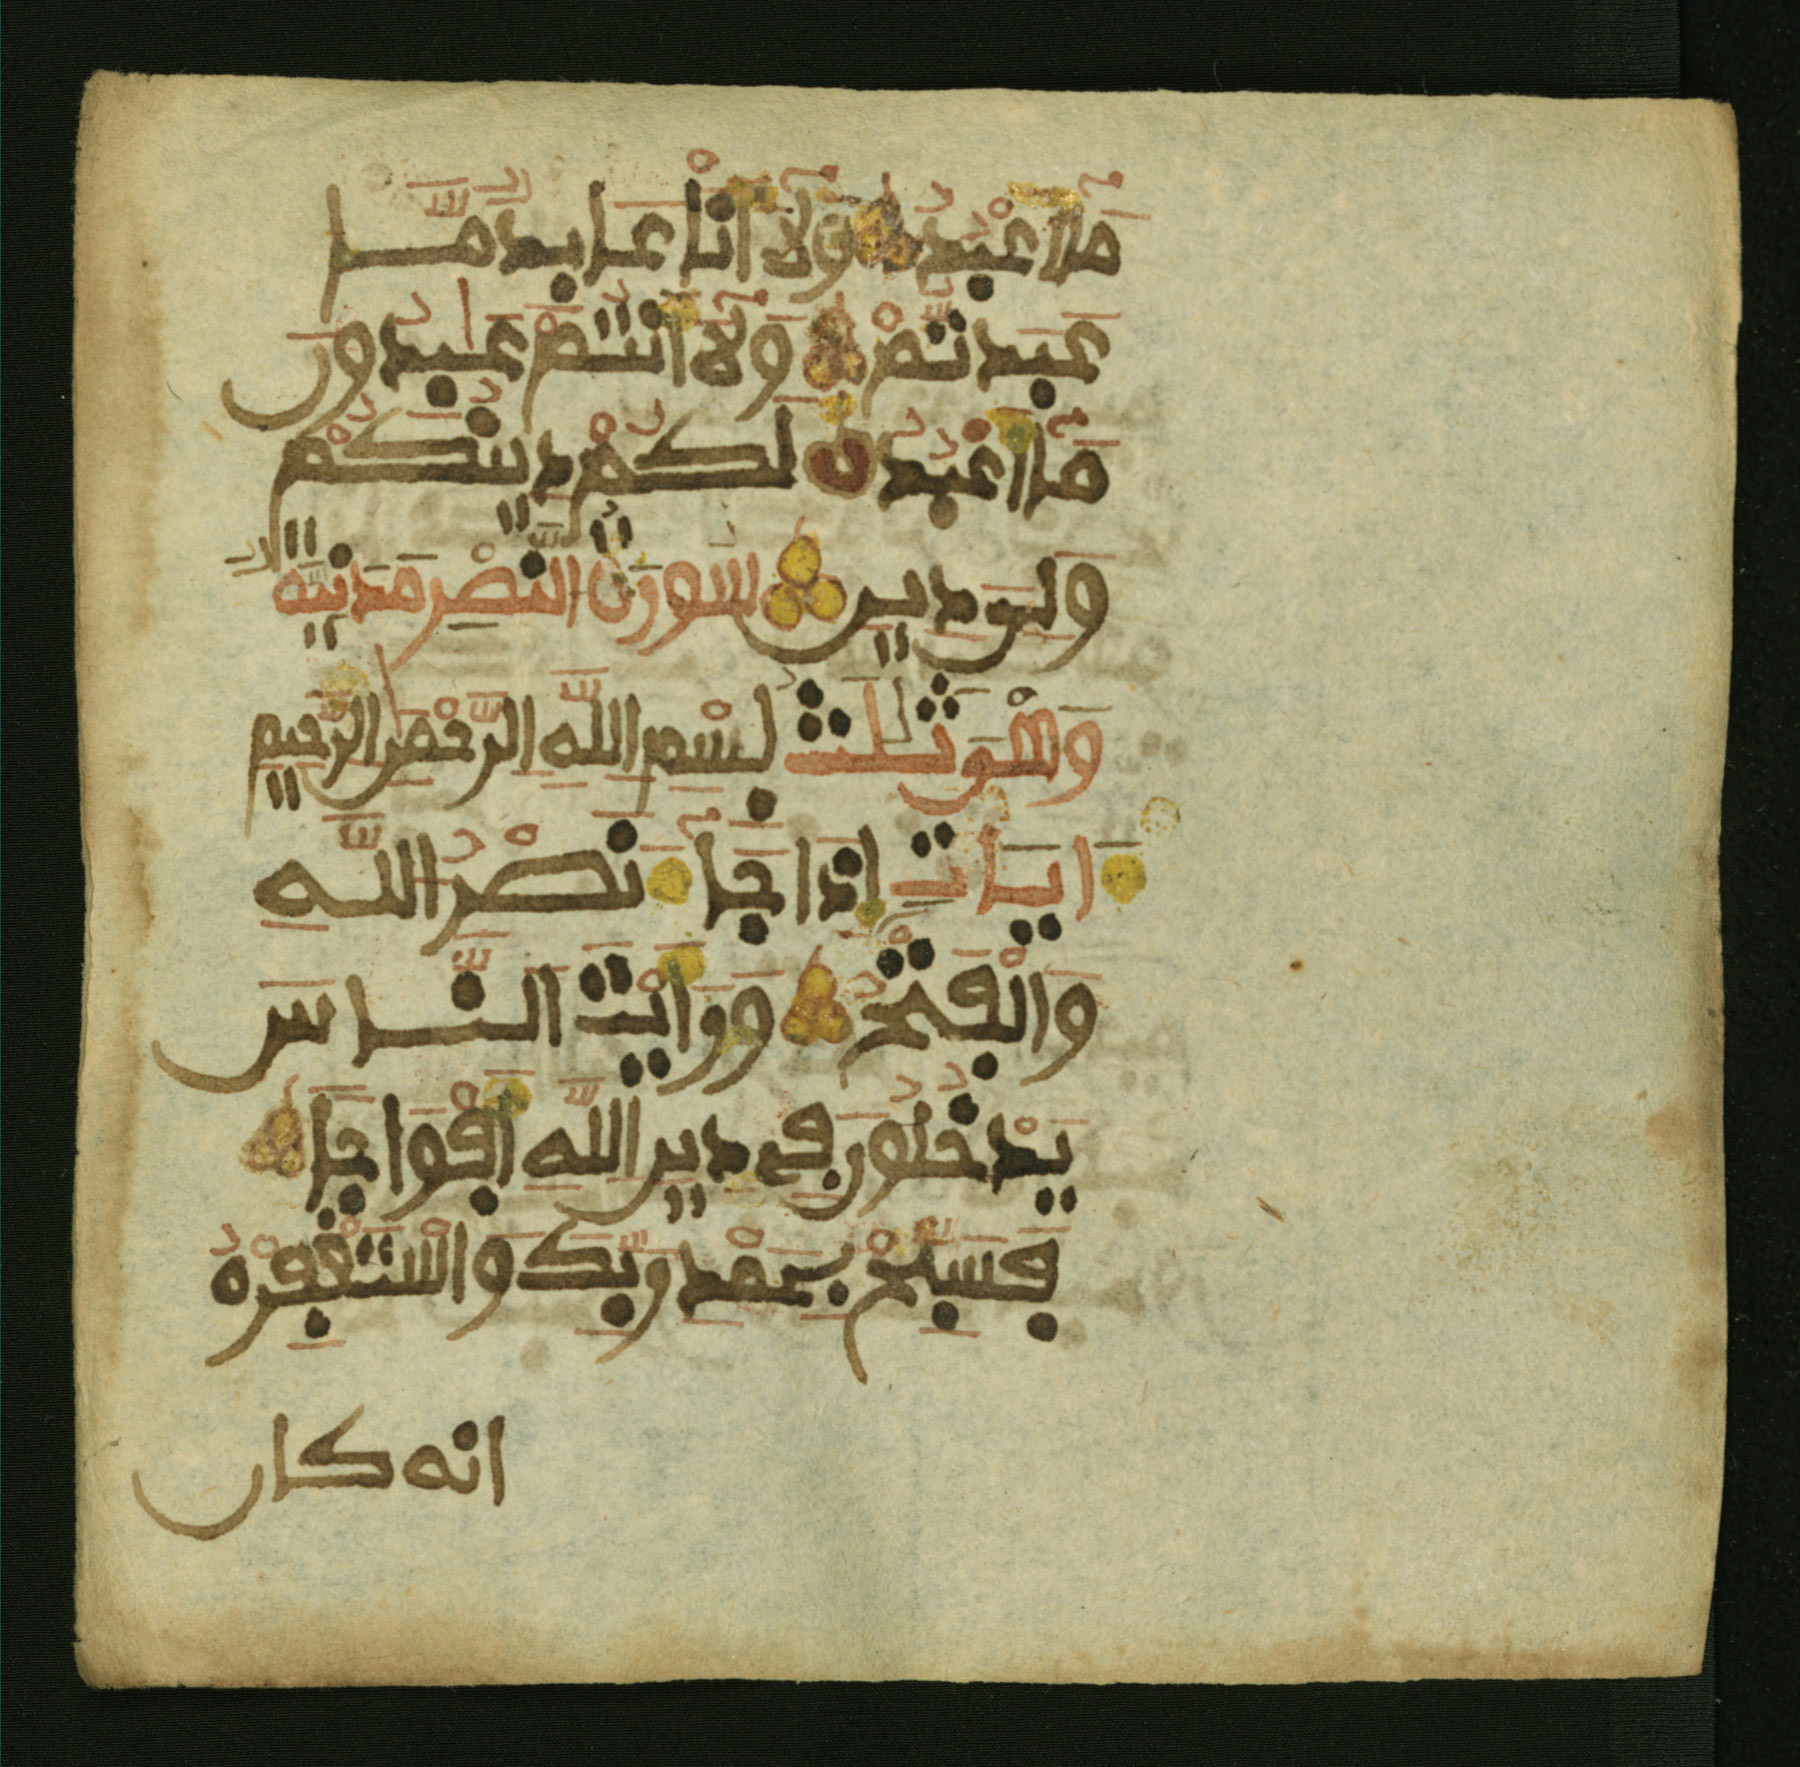 مَآ أَعْبُدُ وَلَآ أَنَا عَابِدٌ مَّا
عَبَدتُّمْ وَلَآ أَنتُمْ عَٰبِدُونَ
مَآ أَعْبُدُ لَكُمْ دِينُكُمْ
وَلِيَ دِينِ سُورَةُ النَّصْرِ مَدَنِيَّةٌ
وَهْيَ ثَلَٰثُ بِسْمِ اللَّهِ الرَّحْمَٰنِ الرَّحِيمِ
ايَاتٍ إِذَا جَآءَ نَصْرُ اللَّهِ
وَالْفَتْحُ وَرَأَيْتَ النَّاسَ
يَدْخُلُونَ فِي دِينِ اللَّهِ أَفْوَاجًا
فَسَبِّحْ بِحَمْدِ رَبِّكَ وَاسْتَغْفِرْهُ
انه كان